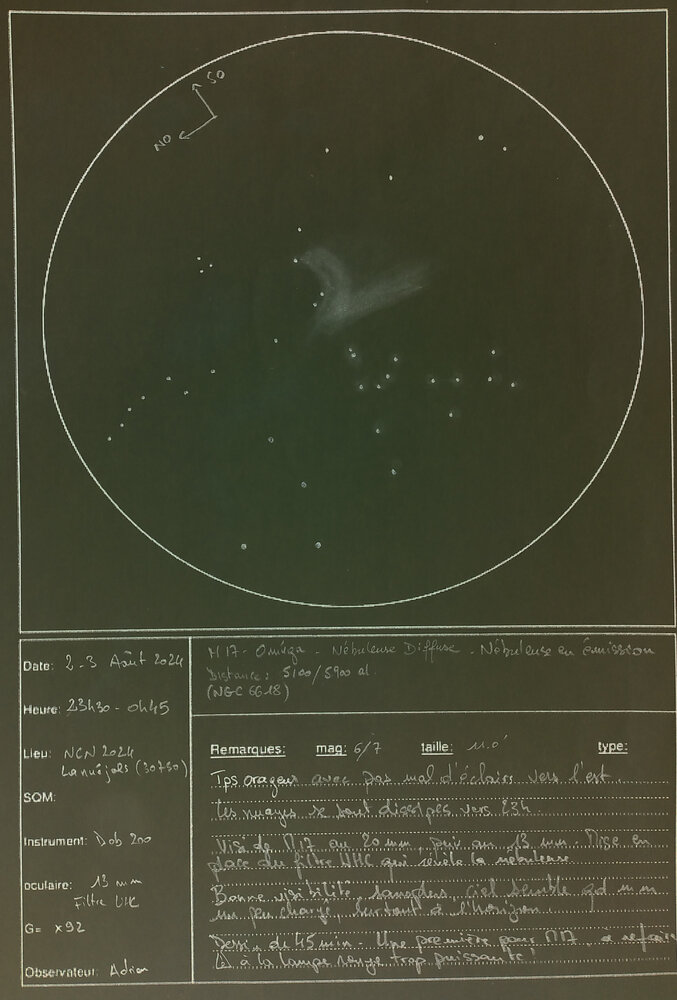 SO
NO
Date: 2-3 Août 2024
M17 - Oméga - Nébuleuse Diffuse - Nébuleuse en émission
Distance: 5100/5900 al.
(NGC 6618)
Heure: 23h30 - 0h45
Lieu: NCN 2024
Lanuéjols (30750)
SQM:
Instrument: Dob 200
oculaire: 13 mm
Filtre UHC
G= x92
Observateur: Adrien
Remarques: mag: 6/7 taille: 11.0' type:
Tps orageux avec pas mal d'éclairs vers l'est.
Les nuages se sont dissipés vers 23h
Visi de M17 au 20 mm, puis au 13 mm. Mise en
place du filtre UHC qui révèle la nébuleuse
Bonne visibilité, ciel semble qd m m
un peu chargé, surtout à l'horizon.
Dessin de 45 min - Une première pour M17, à refaire
à la lampe rouge trop puissante!